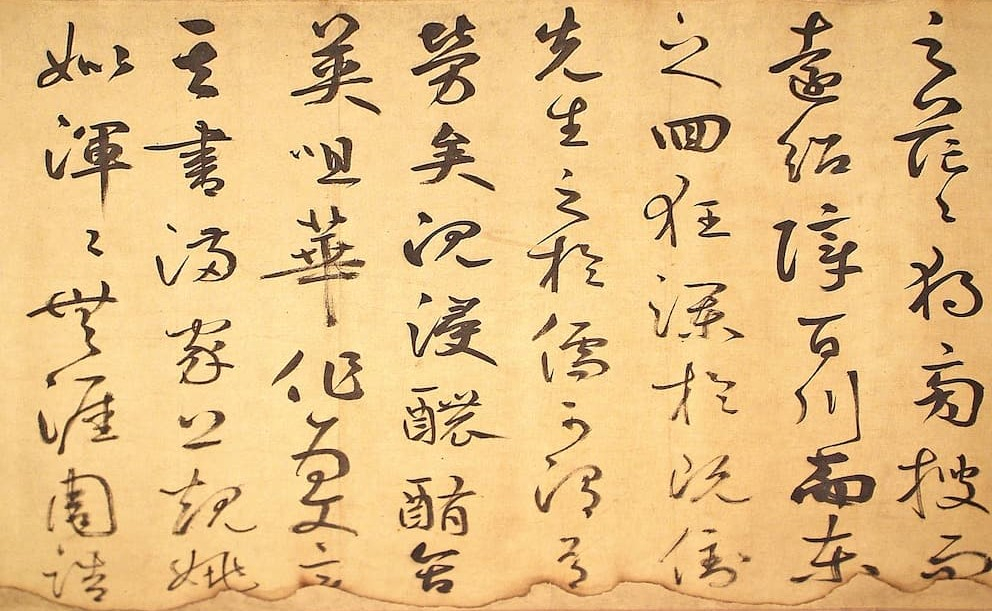 之茫〻獨旁搜而
遠紹障百川而東
之回狂瀾於既倒
先生之於儒可謂有
勞矣沉浸醲郁含
英咀華作為文章
其書滿家上規姚
姒渾〻無涯周誥